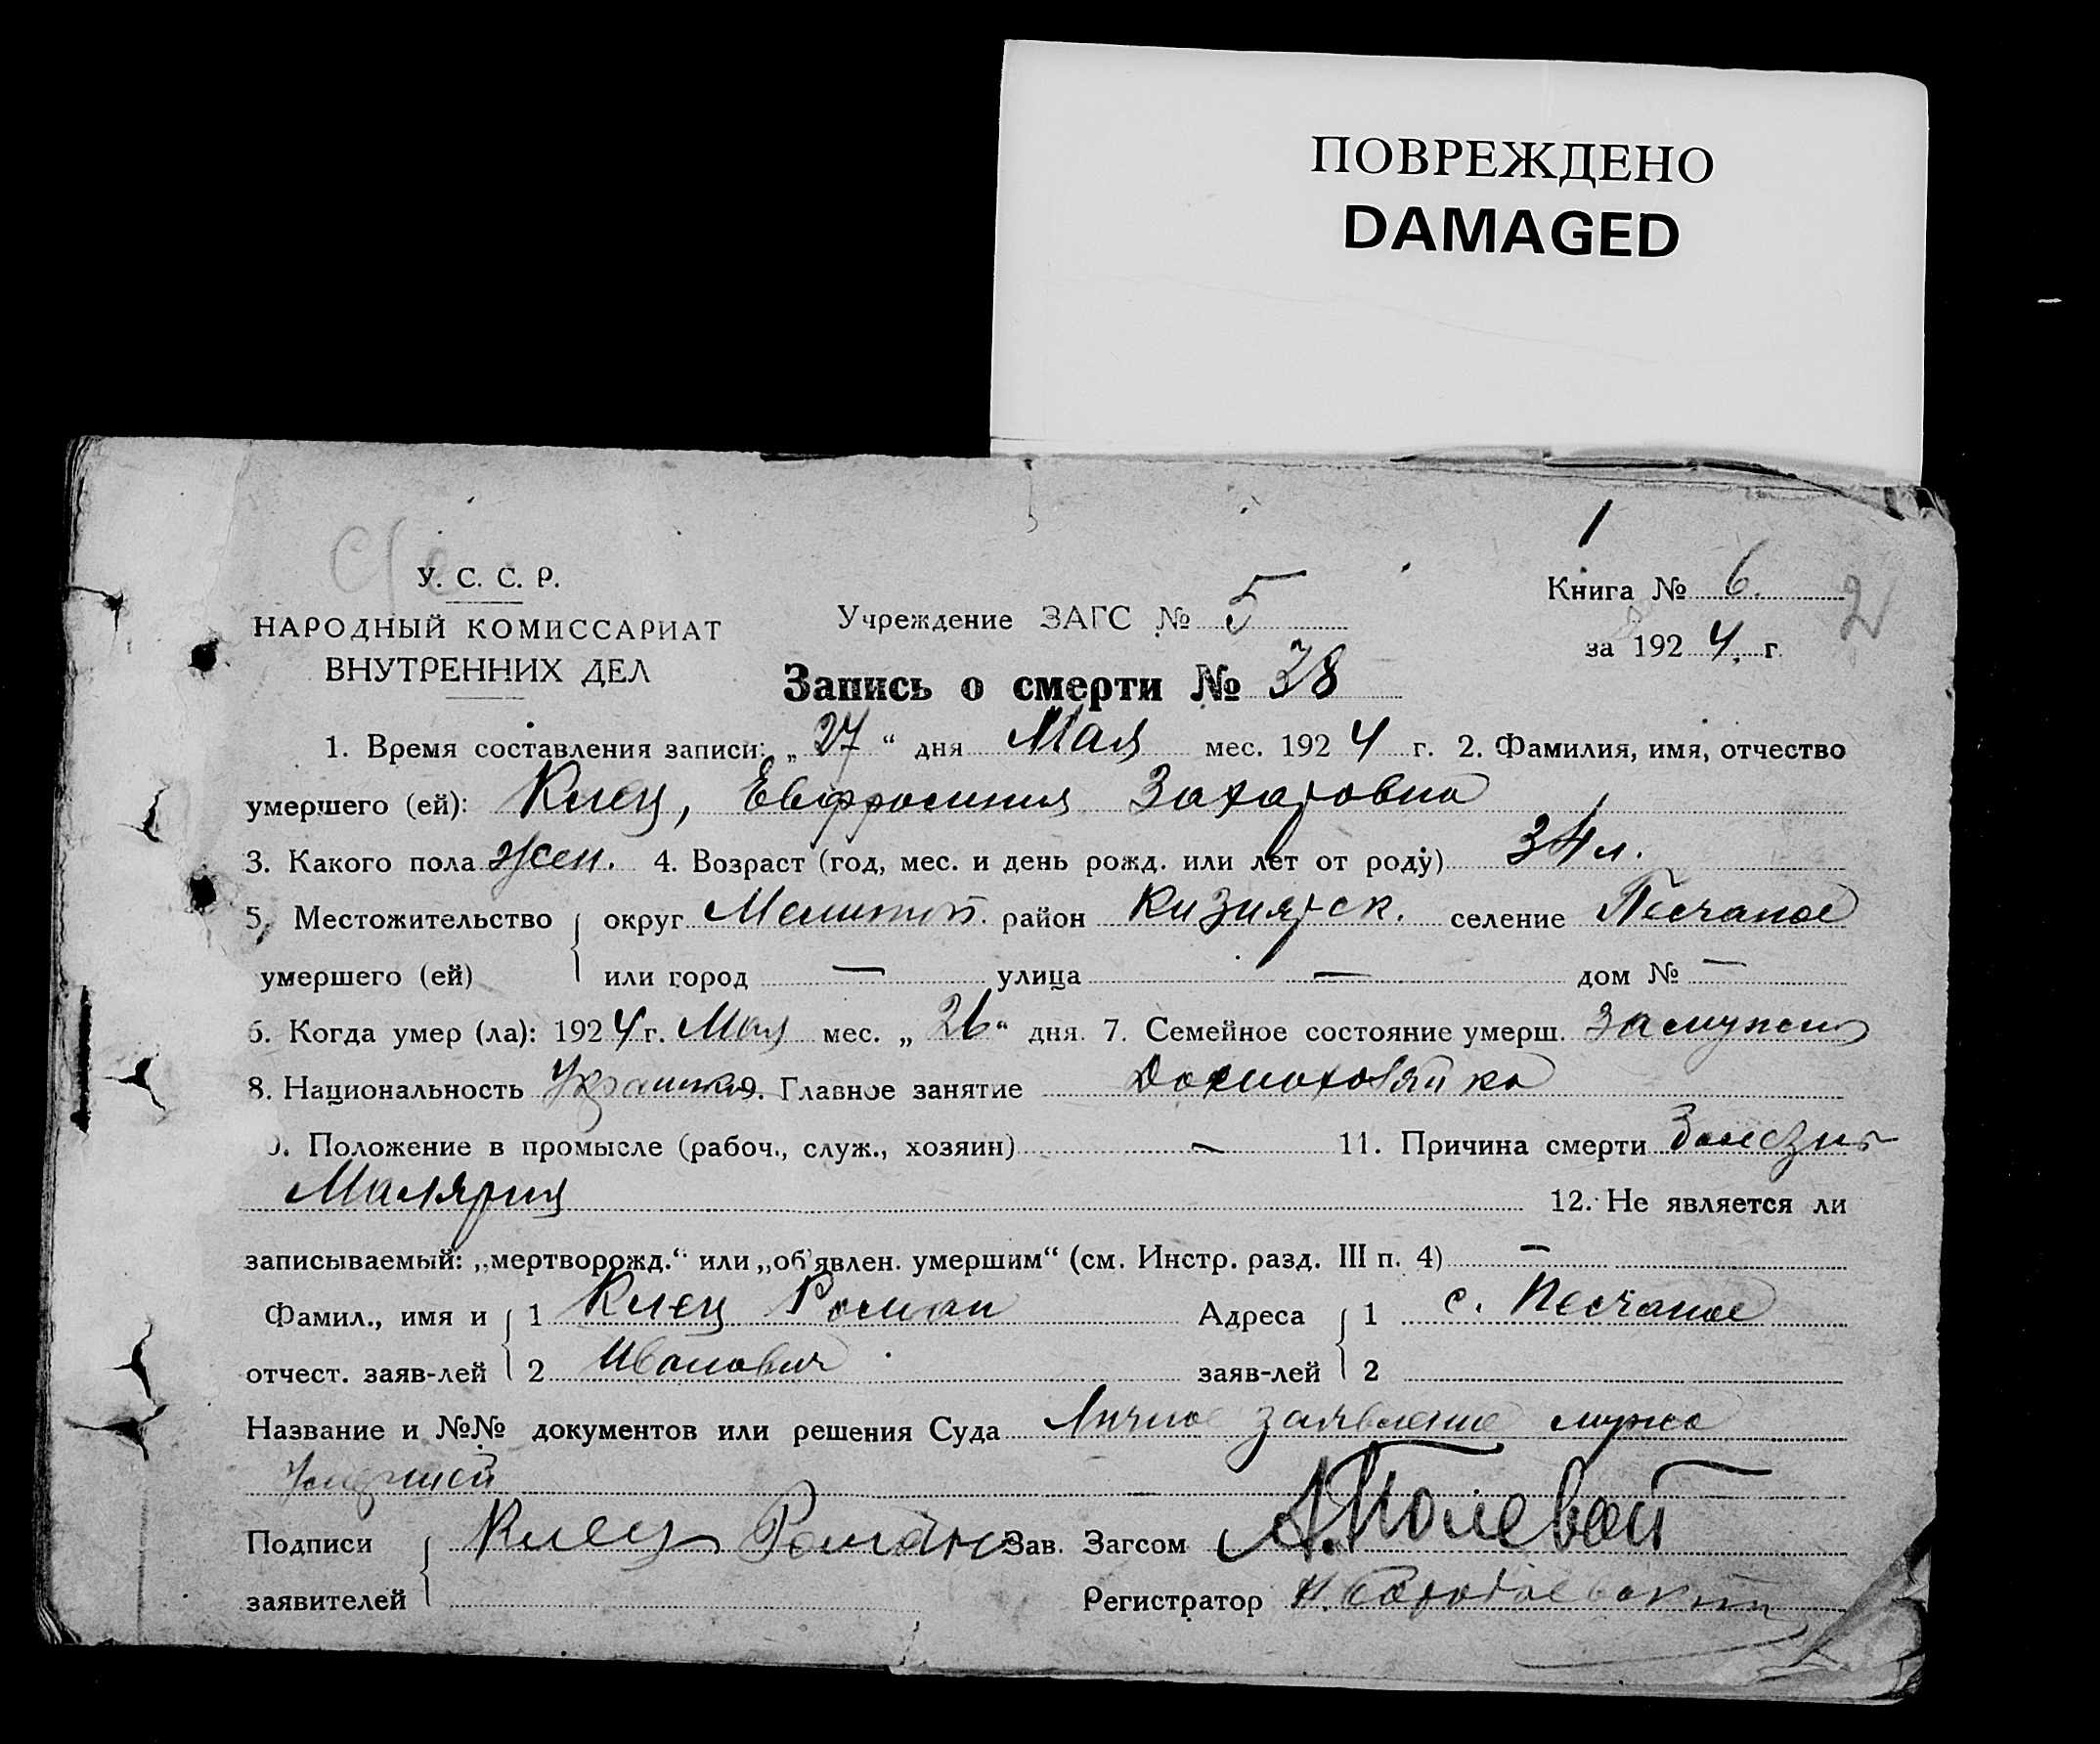 ПОВРЕЖДЕНО
DAMAGED
1
У. С. С. Р.
НАРОДНЫЙ КОМИССАРИАТ
ВНУТРЕННИХ ДЕЛ
Учреждение ЗАГС № 5
Книга № 6.
2
за 1924. г.
Запись о смерти № 38
1. Время составления записи: „27“ дня Мая мес. 1924 г. 2. Фамилия, имя, отчество
умершего (ей): Клец, Евфросиния Захаровна
3. Какого пола жен. 4. Возраст (год, мес. и день рожд. или лет от роду) 34 л.
5. Местожительство округ Мелитоп. район Кизиярск. селение Песчаное
умершего (ей) или город — улица — дом № —
6. Когда умер (ла): 1924 г. Мая мес. „26“ дня. 7. Семейное состояние умерш. Замужем
8. Национальность Украинка 9. Главное занятие Домохозяйка
0. Положение в промысле (рабоч., служ., хозяин) — 11. Причина смерти Болезнь
Малярия 12. Не является ли
записываемый: „мертворожд.“ или „об'явлен. умершим“ (см. Инстр. разд. III п. 4) —
Фамил., имя и 1 Клец Роман Адреса 1 с. Песчаное
отчест. заяв-лей 2 Иванович заяв-лей 2
Название и №№ документов или решения Суда Личное заявление мужа
Умершей
Подписи Клец Роман Зав. Загсом А. Полевой
заявителей Регистратор Н.